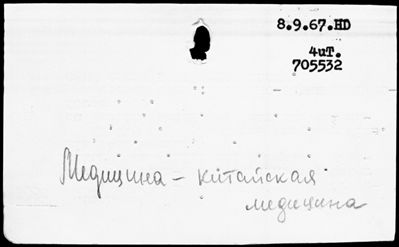 8.9.67.HD
4иТ.
705532
Медицина – китайская
медицина